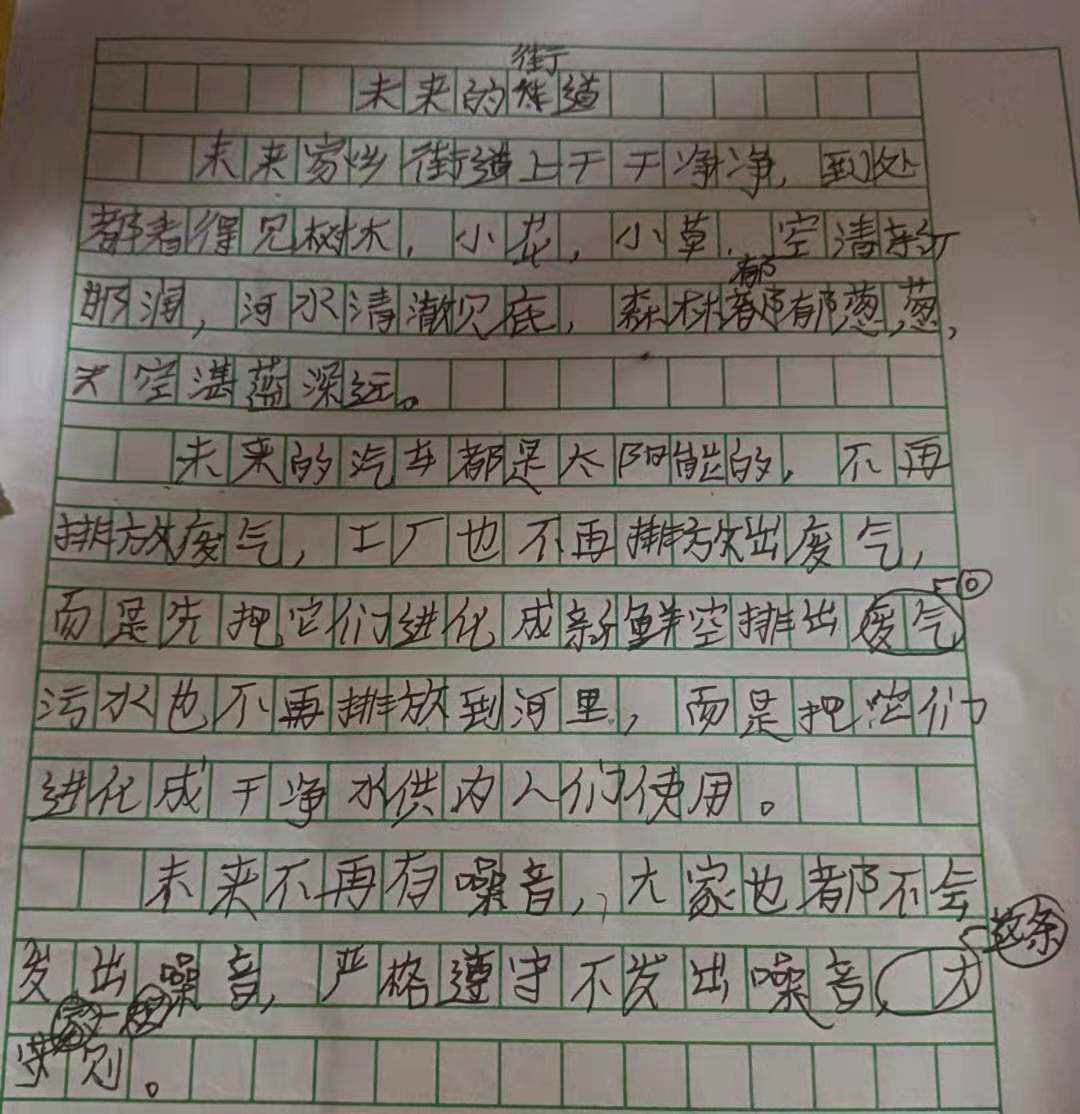 街
未来的街道
未来家乡街道上干干净净，到处
都看得见树木，小花，小草，空清新
明润，河水清澈见底，森林郁郁葱葱，
天空湛蓝深远。
未来的汽车都是太阳能的，不再
排放废气，工厂也不再排放出废气，
而是先把它们进化成新鲜空排出废气
污水也不再排放到河里，而是把它们
进化成干净水供内人们使用。
未来不再有噪音，大家也都不会
这条
发出噪音，严格遵守不发出噪音
守则。